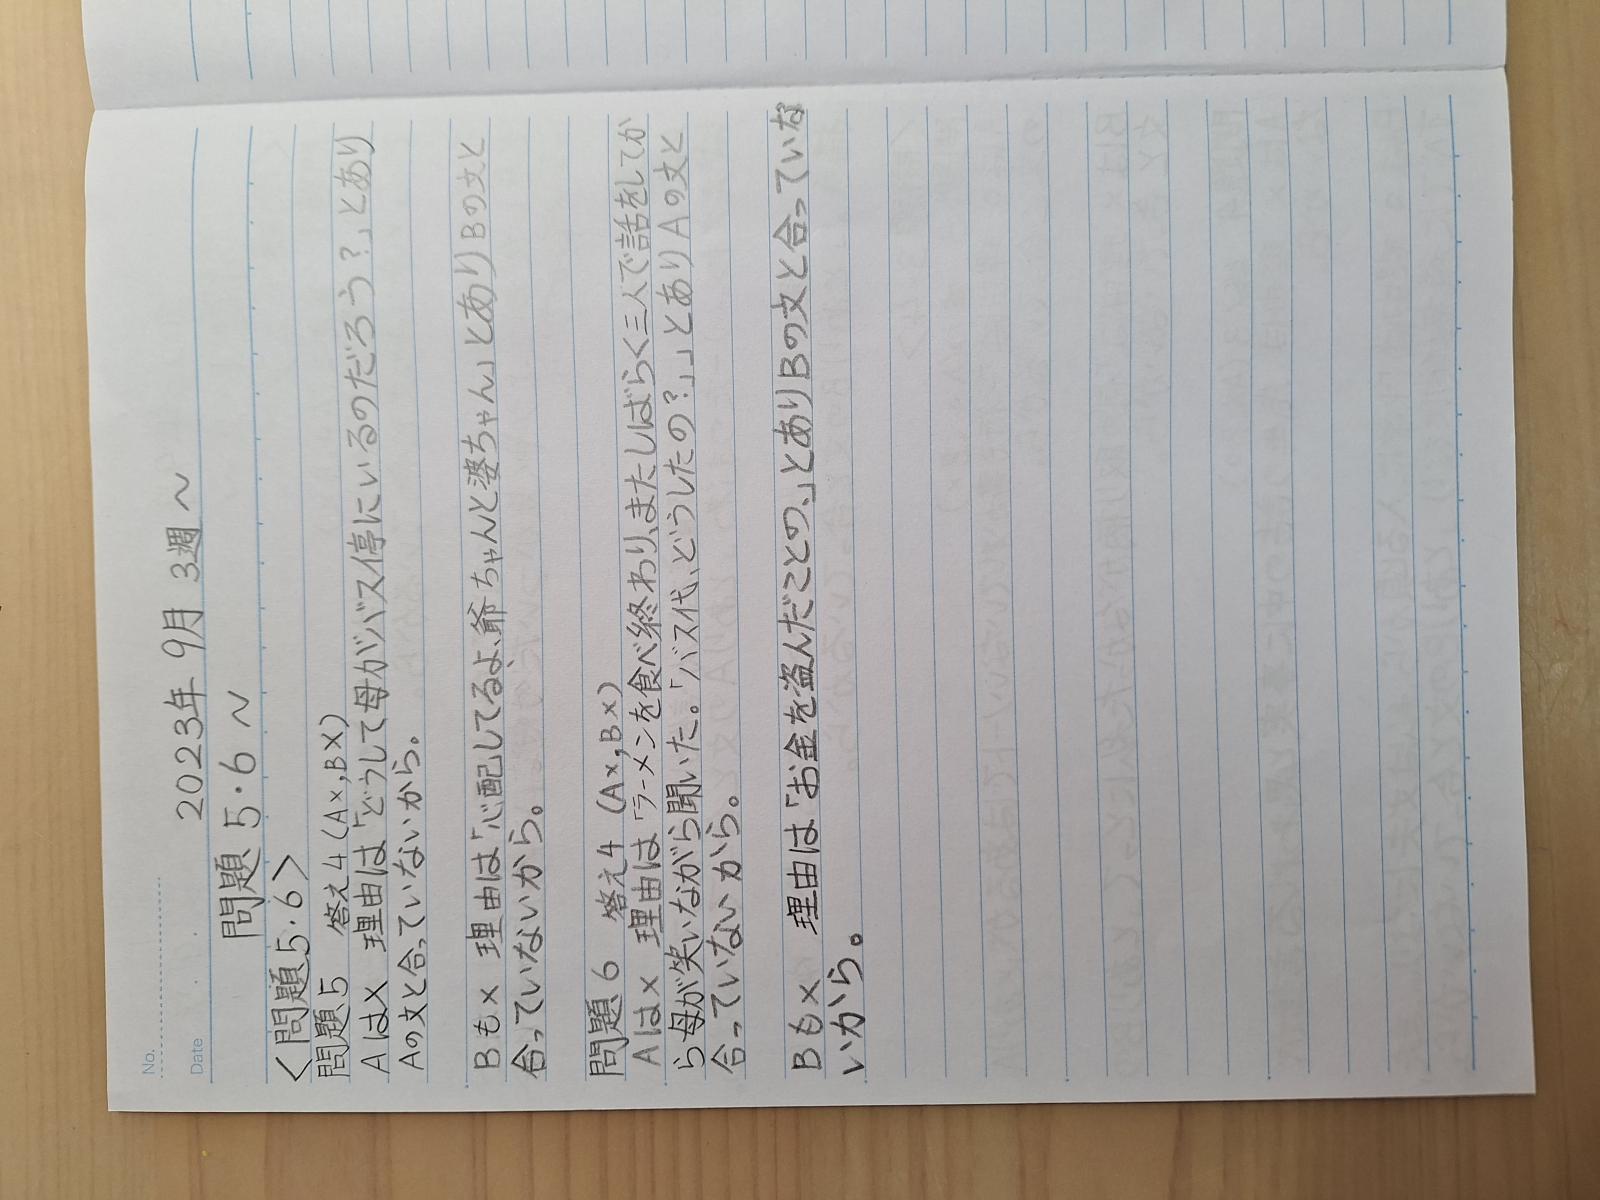 No.
Date
2023年 9月 3週 〜
問題 5・6 〜
<問題5・6>
問題5 答え4(A×,B×)
Aは× 理由は「どうして母がバス停にいるのだろう?」とあり
Aの文と合っていないから。
Bも× 理由は「心配してるよ、爺ちゃんと婆ちゃん」とありBの文と
合っていないから。
問題6 答え4 (A×,B×)
Aは× 理由は「ラーメンを食べ終わり、またしばらく三人で話をしてか
ら母が笑いながら聞いた。「バス代、どうしたの?」」とありAの文と
合っていないから。
Bも× 理由は「お金を盗んだことの、」とありBの文と合っていな
いから。